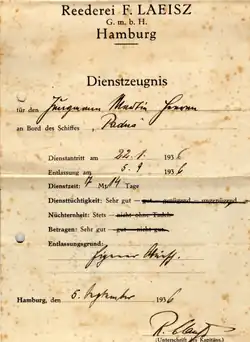 Reederei F. LAEISZ
G. m. b. H.
Hamburg
Dienstzeugnis
für den Jungmann Martin
an Bord des Schiffes „Padua“
Dienstantritt am 22. 1. 1936
Entlassung am 5. 9 1936
Dienstzeit: 7 M; 14 Tage
Diensttüchtigkeit: Sehr gut — gut — genügend — ungenügend
Nüchternheit: Stets — nicht ohne Tadel
Betragen: Sehr gut — gut — nicht gut
Entlassungsgrund:
Eigener Wunsch.
Hamburg, den 5. September 1936
(Unterschrift des Kapitäns.)